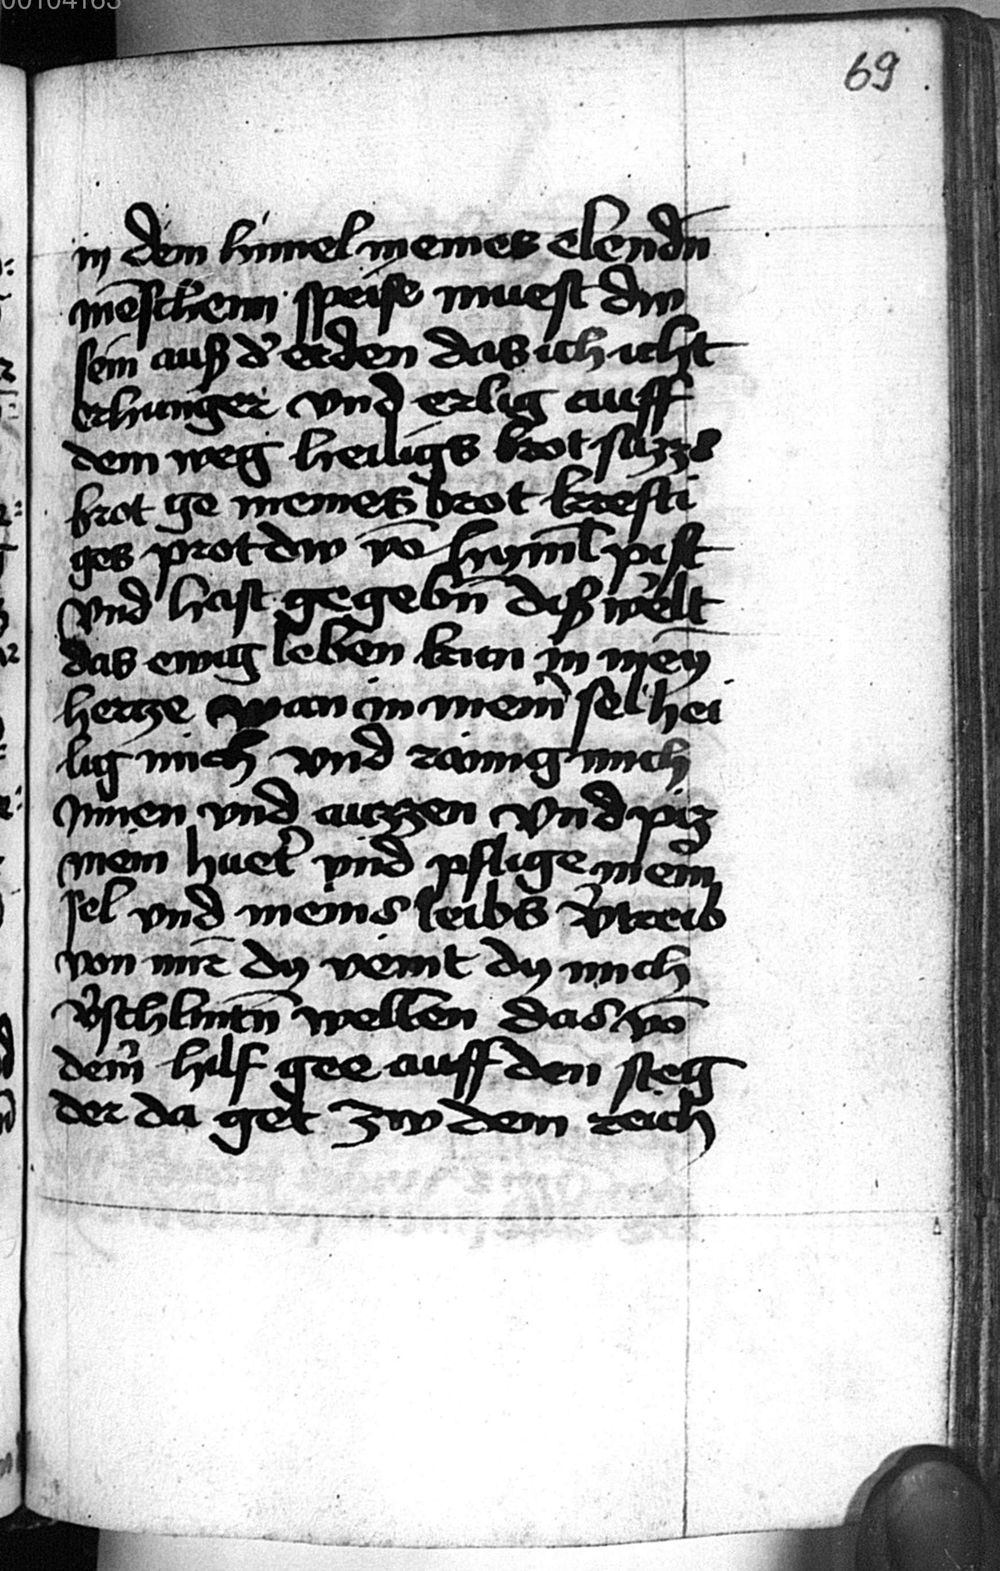 00104163
69
in dem himel meines elendn̄
mēschenn speise muest dw
sein auß d' erden das ich icht
erhunger vnd erlig auff
dem weg heiligs brot süzzs
brot ge meines brot krefti
ges prot dw vō hym̄l pist
vnd hast gegebn̄ diß welt
das ewig leben kum in mey̅
hertze wan in mein̄ sel hei
lig mich vnd rainig mich
Innen vnd auzzen vnd piz
mein huet' vnd pflige mein̄
sel vnd meins leibs v'treib
von mir dy veint dy mich
v'schlintn̄ wellen das vō
dein̄ hilf gee auff den steg
der da get zw dem reich